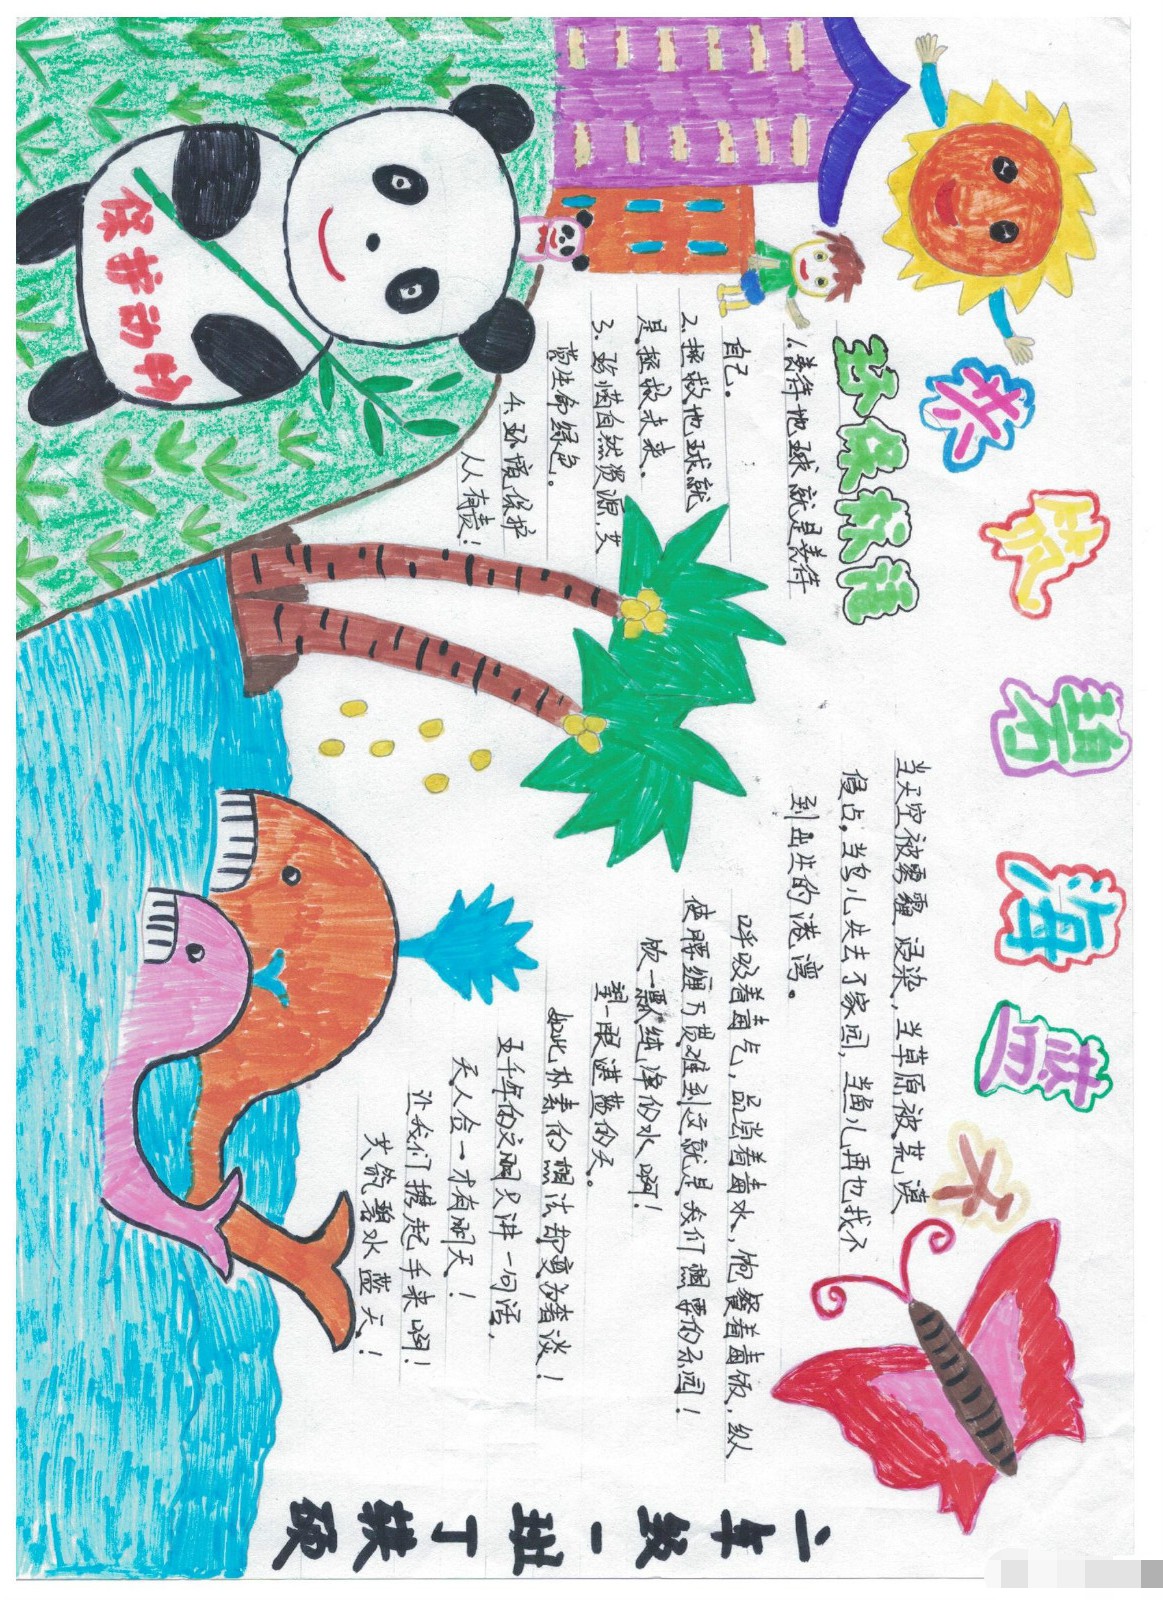 共筑碧海蓝天
环保标语
1.善待地球就是善待
自己。
2.拯救地球就
是拯救未来。
3.珍惜自然资源,共
营生命绿色。
4.环境保护
人人有责!
保护动物
当天空被雾霾浸染,当草原被荒漠
侵占,当鸟儿失去了家园,当鱼儿再也找不
到出生的港湾。
呼吸着毒气,品尝着毒水,饱餐着毒饭,纵
使腰缠万贯难到这就是我们想要的乐园!
饮一瓢纯净的水啊!
望一眼湛蓝的天。
如此朴素的想法却变为奢谈!
五千年的文明只讲一句话,
天人合一才有明天!
让我们携起手来啊!
共筑碧水蓝天!
二年级一班丁拱硕